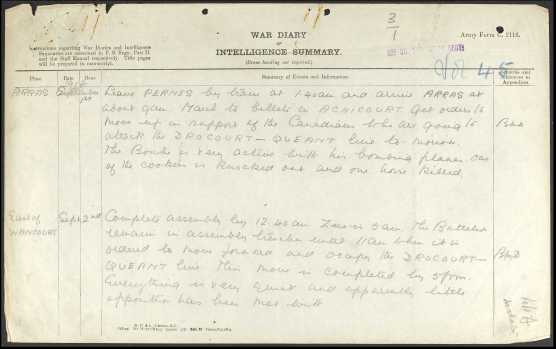 3/1
WAR DIARY
or
INTELLIGENCE SUMMARY.
(Erase heading not required).
Army Form C. 2118.
Instructions regarding War Diaries and Intelligence
Summaries are contained in F. S. Regs., Part II.
and the Staff Manual respectively. Title pages
will be prepared in manuscript.
Vol 45
Place
Date
Hour
Summary of Events and Information
Remarks and
references to
Appendices
ARRAS
1st
Leave PERNES by train at 1.40am and arrive ARRAS at
about 9am. March to billets in ACHICOURT Get orders to
move up in support of the Canadians who are going to
attack the DROCOURT – QUEANT line to-morrow.
The Boche is very active with his bombing planes. One
of the cookers is knocked out and one horse killed.
East of
WANCOURT
Sept
2nd
Complete assembly by 12.40am Zero is 5am. The Battalion
remain in assembly trenches until 11am when it is
ordered to move forward and occupy the DROCOURT –
QUEANT line This move is completed by 5pm.
Everything is very quiet and apparently little
opposition has been met with